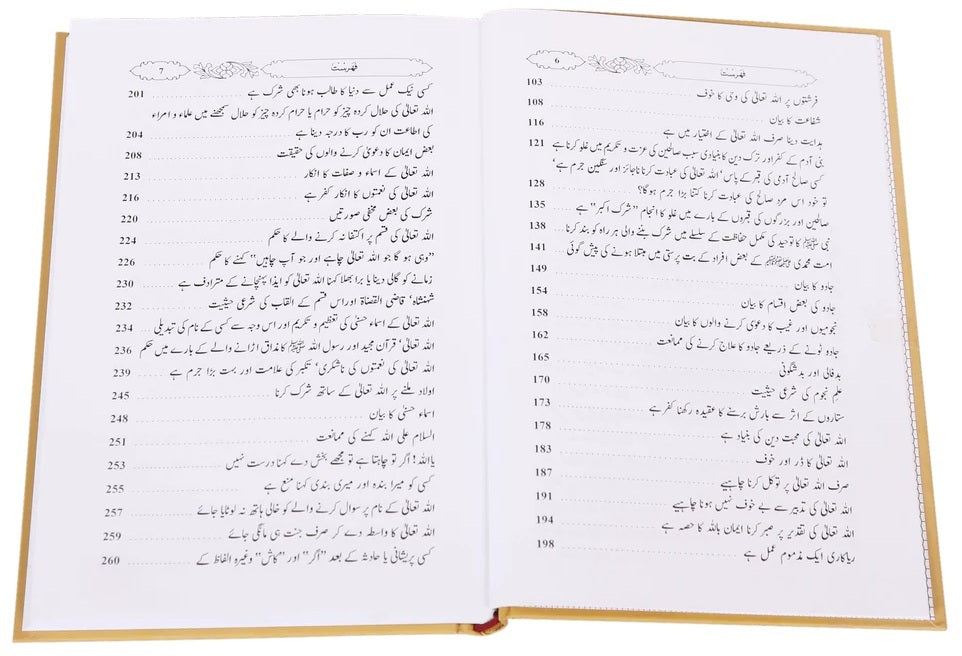 6 فہرست
فرشتوں پر اللہ تعالیٰ کی وحی کا خوف 103
شفاعت کا بیان 108
ہدایت دینا صرف اللہ تعالیٰ کے اختیار میں ہے 116
بنی آدم کے کفر اور ترک دین کا بنیادی سبب صالحین کی عزت و تکریم میں غلو کرنا ہے 121
کسی صالح آدمی کی قبر کے پاس' اللہ تعالیٰ کی عبادت کرنا ناجائز اور سنگین جرم ہے'
تو خود اس مرد صالح کی عبادت کرنا کتنا بڑا جرم ہو گا؟ 128
صالحین اور بزرگوں کی قبروں کے بارے میں غلو کا انجام "شرک اکبر" ہے 135
نبی ﷺ کا توحید کی مکمل حفاظت کے سلسلے میں شرک بننے والی ہر راہ کو بند کرنا 138
امت محمدی ﷺ کے بعض افراد کے بت پرستی میں مبتلا ہونے کی پیش گوئی 141
جادو کا بیان 149
جادو کی بعض اقسام کا بیان 154
نجومیوں اور غیب کا دعویٰ کرنے والوں کا بیان 158
جادو ٹونے کے ذریعے جادو کا علاج کرنے کی ممانعت 162
بدفالی اور بدشگونی 165
علم نجوم کی شرعی حیثیت 170
ستاروں کے اثر سے بارش برسنے کا عقیدہ رکھنا کفر ہے 173
اللہ تعالیٰ کی محبت دین کی بنیاد ہے 178
اللہ تعالیٰ کا ڈر اور خوف 183
صرف اللہ تعالیٰ پر توکل کرنا چاہیے 187
اللہ تعالیٰ کی تدبیر سے بے خوف نہیں ہونا چاہیے 191
اللہ تعالیٰ کی تقدیر پر صبر کرنا ایمان باللہ کا حصہ ہے 194
ریاکاری ایک مذموم عمل ہے 198
7 فہرست
کسی نیک عمل سے دنیا کا طالب ہونا بھی شرک ہے 201
اللہ تعالیٰ کی حلال کردہ چیز کو حرام یا حرام کردہ چیز کو حلال سمجھنے میں علماء و امراء
کی اطاعت ان کو رب کا درجہ دینا ہے 204
بعض ایمان کا دعویٰ کرنے والوں کی حقیقت 208
اللہ تعالیٰ کے اسماء و صفات کا انکار 213
اللہ تعالیٰ کی نعمتوں کا انکار کفر ہے 216
شرک کی بعض مخفی صورتیں 220
اللہ تعالیٰ کی قسم پر اکتفا نہ کرنے والے کا حکم 224
"وہی ہو گا جو اللہ تعالیٰ چاہے اور جو آپ چاہیں" کہنے کا حکم 226
زمانے کو گالی دینا یا برا بھلا کہنا اللہ تعالیٰ کو ایذا پہنچانے کے مترادف ہے 230
شہنشاہ' قاضی القضاۃ اور اس قسم کے القاب کی شرعی حیثیت 232
اللہ تعالیٰ کے اسماء حسنیٰ کی تعظیم و تکریم اور اس وجہ سے کسی کے نام کی تبدیلی 234
اللہ تعالیٰ' قرآن مجید اور رسول اللہ ﷺ کا مذاق اڑانے والے کے بارے میں حکم 236
اللہ تعالیٰ کی نعمتوں کی ناشکری' تکبر کی علامت اور بہت بڑا جرم ہے 239
اولاد ملنے پر اللہ تعالیٰ کے ساتھ شرک کرنا 245
اسماء حسنیٰ کا بیان 248
السلام علی اللہ کہنے کی ممانعت 251
یااللہ! اگر تو چاہتا ہے تو مجھے بخش دے کہنا درست نہیں 253
کسی کو میرا بندہ اور میری بندی کہنا منع ہے 255
اللہ تعالیٰ کے نام پر سوال کرنے والے کو خالی ہاتھ نہ لوٹایا جائے 257
اللہ تعالیٰ کا واسطہ دے کر صرف جنت ہی مانگی جائے 259
کسی پریشانی یا حادثے کے بعد "اگر" اور "کاش" وغیرہ الفاظ کے 260